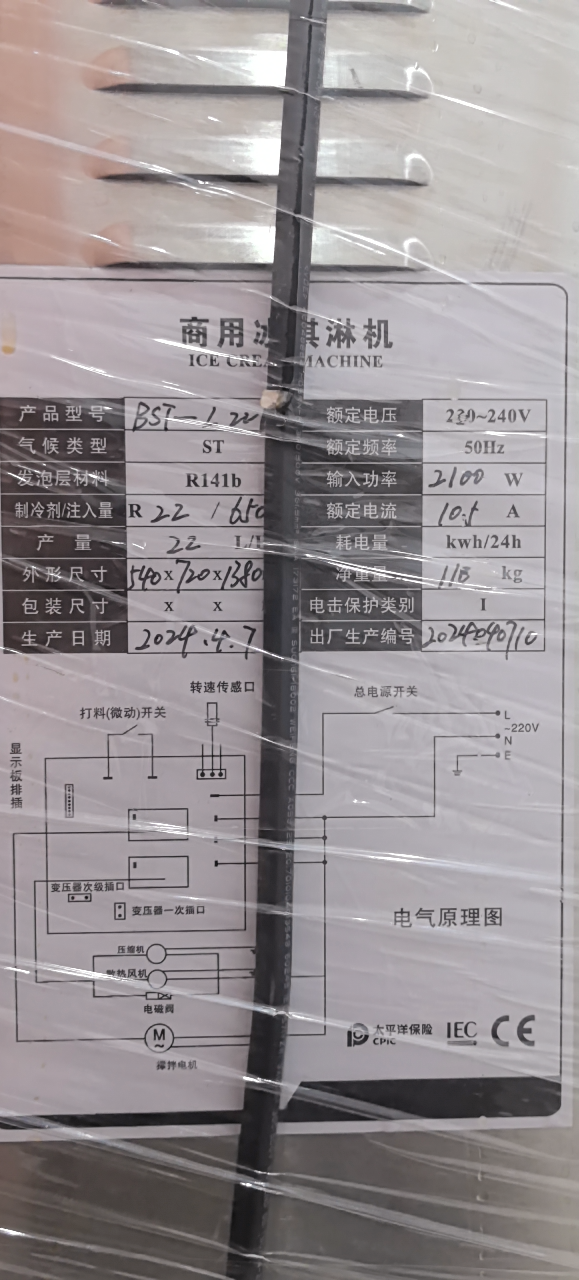 商用冰淇淋机
ICE CREAM MACHINE
产品型号 BST-122 额定电压 220~240V
气候类型 ST 额定频率 50Hz
发泡层材料 R141b 输入功率 2100 W
制冷剂/注入量 R 22 / 650 额定电流 10.5 A
产量 22 L/ 耗电量 kwh/24h
外形尺寸 540x720x1380 净重量 118 kg
包装尺寸 x x 电击保护类别 I
生产日期 2024.4.7 出厂生产编号
转速传感口 总电源开关
打料(微动)开关 L
~220V
N
显示板排插 E
变压器次级插口
变压器一次插口
电气原理图
压缩机
散热风机
电磁阀
M
~
搅拌电机
太平洋保险 IEC CE
CPIC